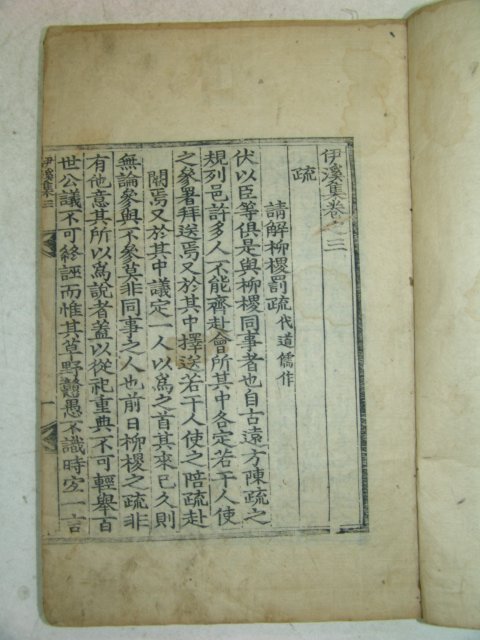 伊溪集卷之三
疏
請解柳櫻罰疏 代道儒作
伏以臣等俱是與柳櫻同事者也自古遠方陳疏之
規列邑許多人不能齊赴會所其中各定若干人使
之參署拜送焉又於其中擇送若干人使之陪疏赴
闕焉又於其中議定一人以爲之首其來已久則
無論參與不參莫非同事之人也前日柳櫻之疏非
有他意其所以爲說者蓋以從祀重典不可輕擧百
世公議不可終誣而惟其草野戇愚不識時宜一言
伊溪集 三
一